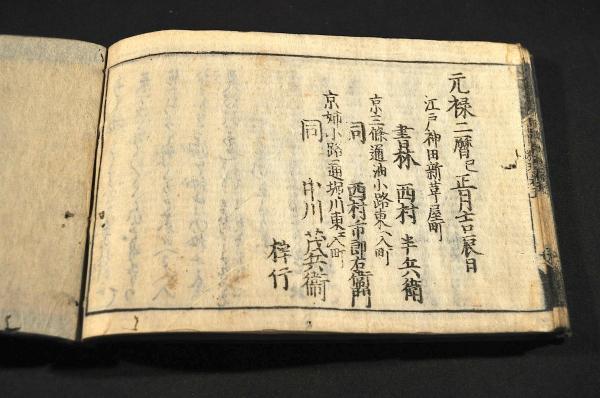 元禄二暦己巳正月吉辰日
江戸神田新革屋町
書林 西村半兵衛
京三條通油小路東ヘ入町
同 西村市郎右衛門
京姉小路通堀川東ヘ入町
同 中川茂兵衛
梓行